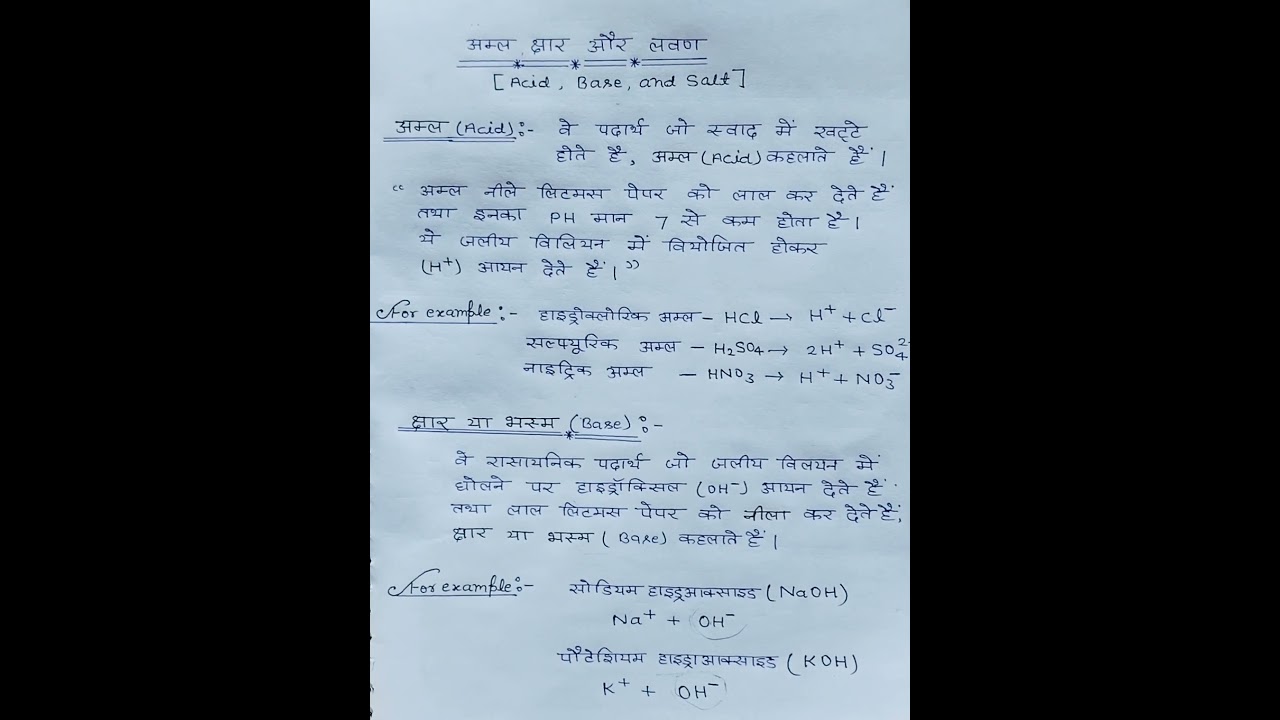 अम्ल क्षार और लवण
[Acid, Base, and Salt]
अम्ल (Acid):- वे पदार्थ जो स्वाद में खट्टे
होते है, अम्ल (Acid) कहलाते हैं।
“ अम्ल नीले लिटमस पेपर को लाल कर देते हैं
तथा इनका PH मान 7 से कम होता है।
ये जलीय विलियन में वियोजित होकर
(H⁺) आयन देते हैं।”
For example:- हाइड्रोक्लोरिक अम्ल – HCl → H⁺ + Cl⁻
सल्फ्यूरिक अम्ल – H₂SO₄ → 2H⁺ + SO₄²⁻
नाइट्रिक अम्ल – HNO₃ → H⁺ + NO₃⁻
क्षार या भस्म (Base):-
वे रासायनिक पदार्थ जो जलीय विलयन में
घोलने पर हाइड्रॉक्सिल (OH⁻) आयन देते हैं
तथा लाल लिटमस पेपर को नीला कर देते हैं,
क्षार या भस्म (Base) कहलाते हैं।
For example:- सोडियम हाइड्रआक्साइड (NaOH)
Na⁺ + OH⁻
पौटेशियम हाइड्राआक्साइड (KOH)
K⁺ + OH⁻